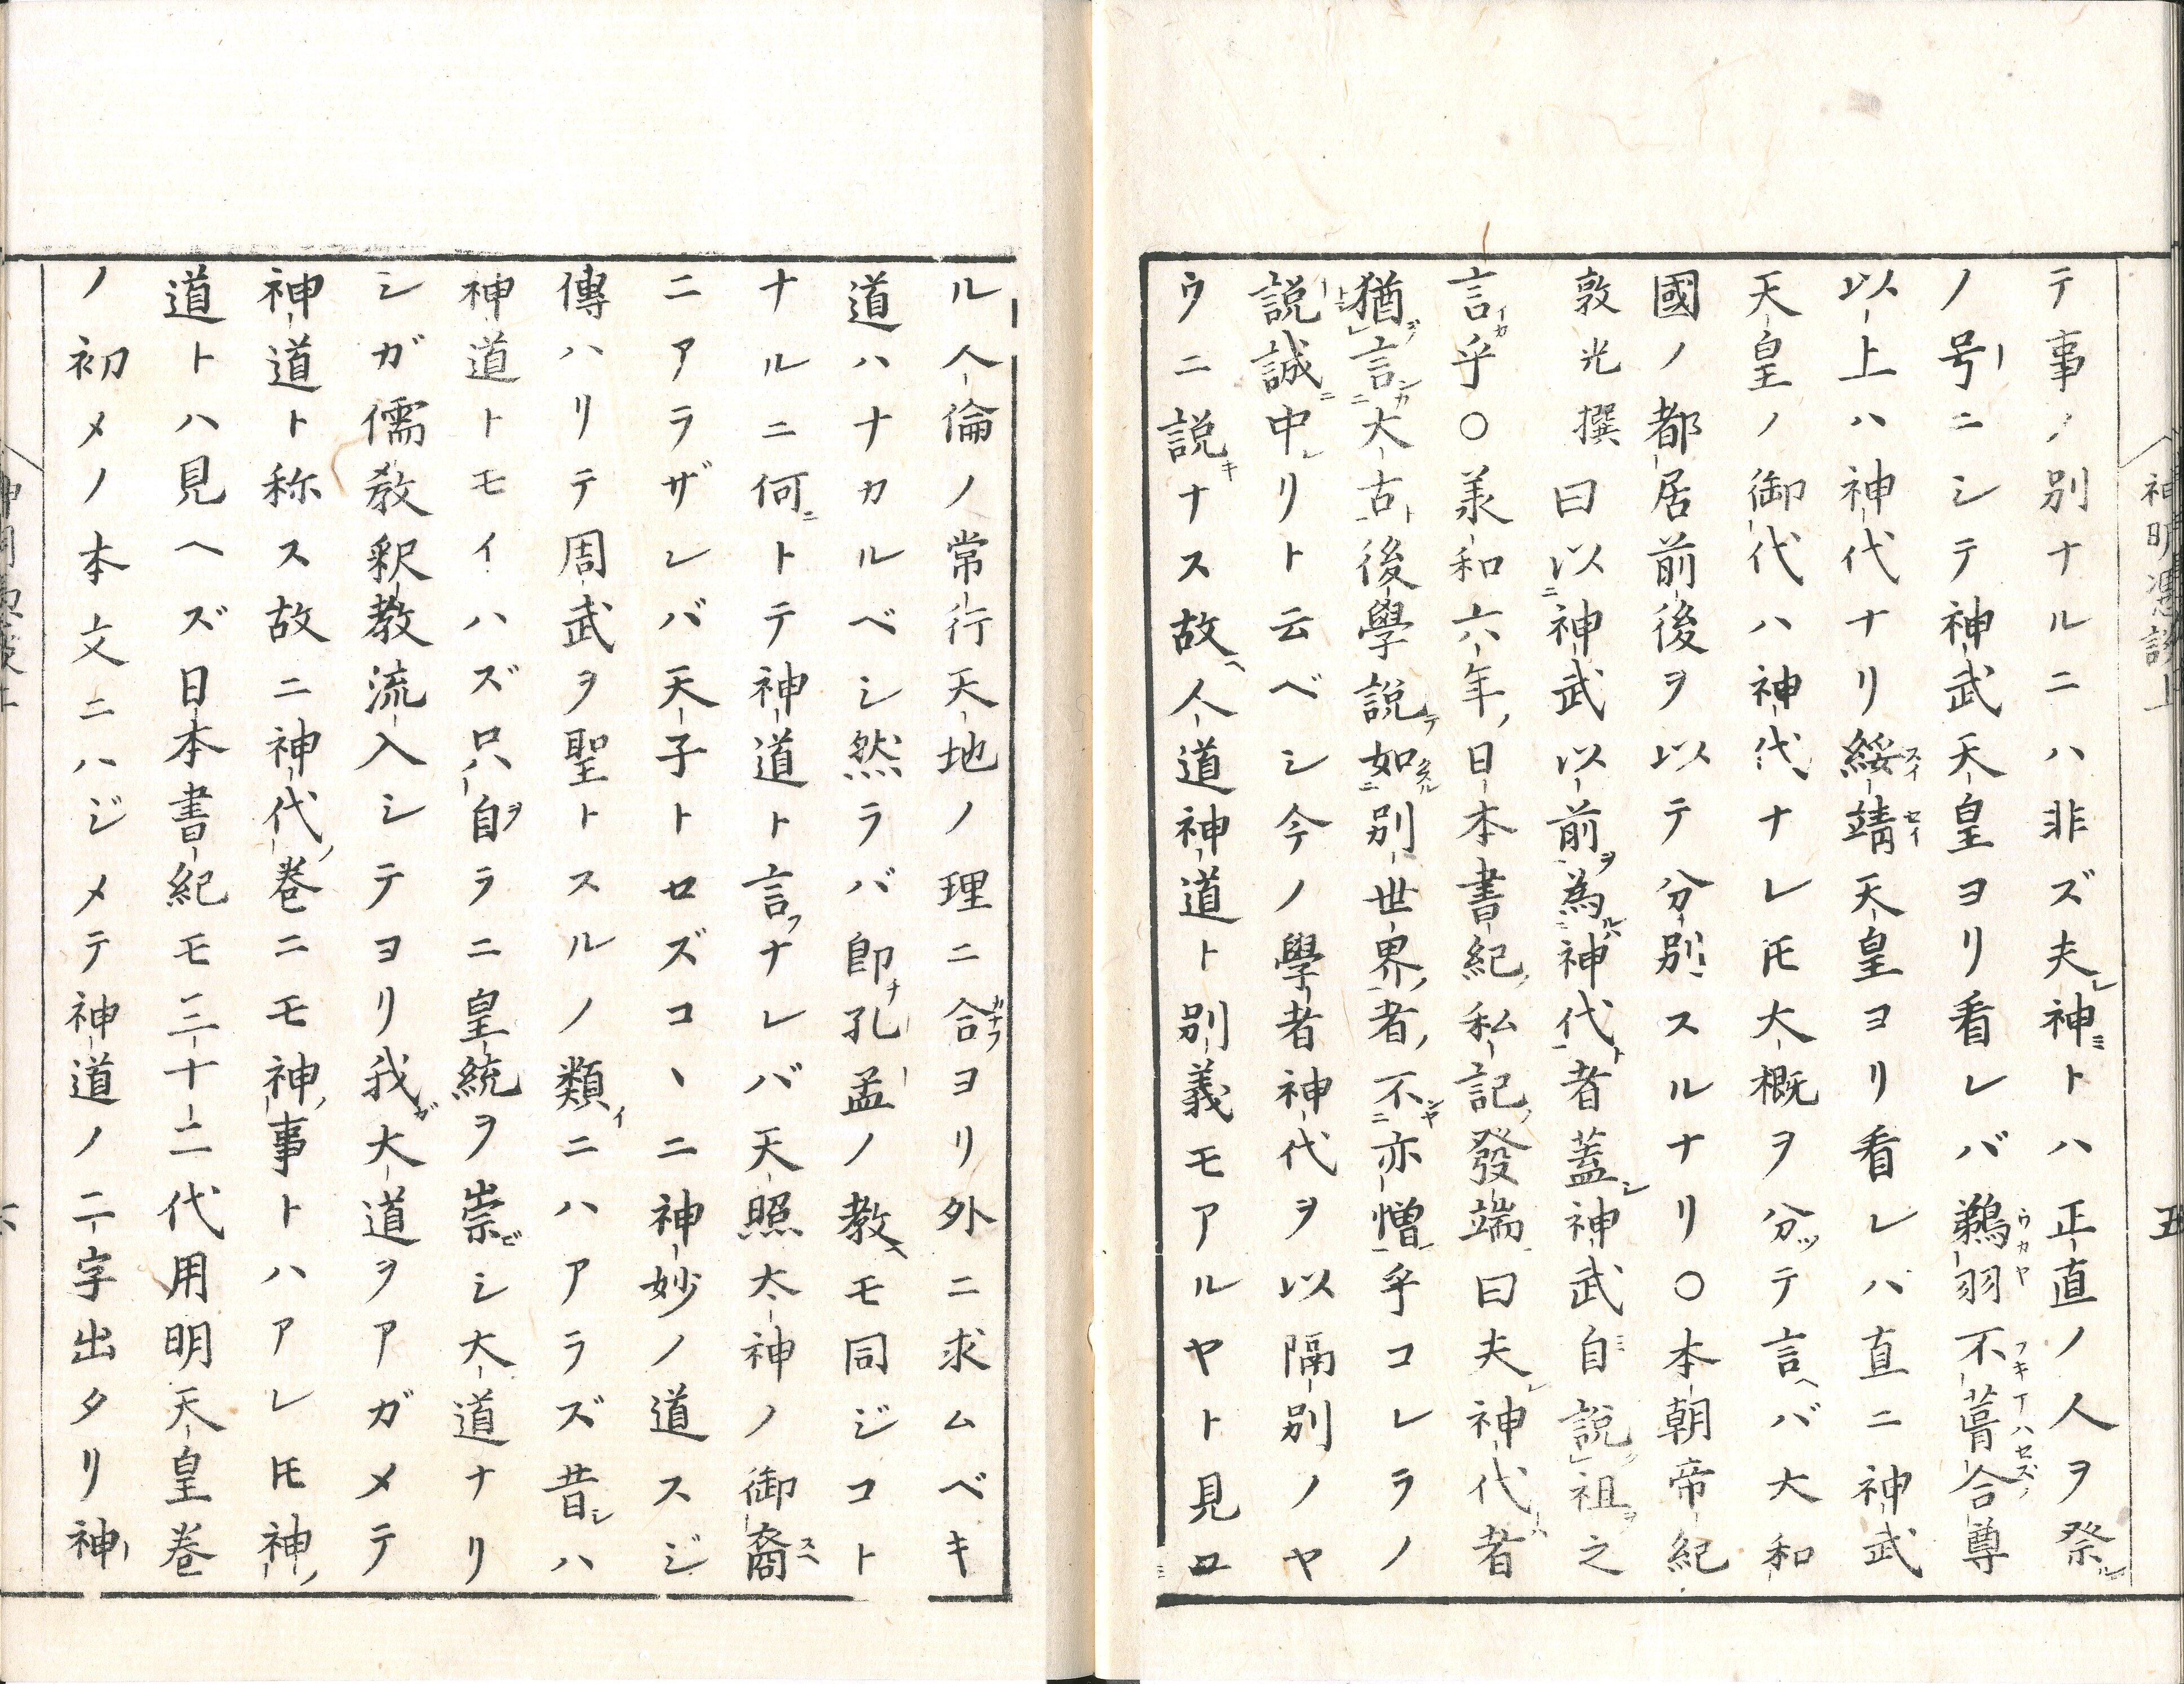 テ事ノ別ナルニハ非ズ夫神トハ正直ノ人ヲ祭
ノ号ニシテ神武天皇ヨリ看レバ鵜羽不葺合尊
以上ハ神代ナリ綏靖天皇ヨリ看レハ直ニ神武
天皇ノ御代ハ神代ナレ𪜈大概ヲ分テ言バ大和
國ノ都居前後ヲ以テ分別スルナリ○本朝帝紀
敦光撰曰以神武以前為神代者蓋神武自説祖之
言乎○羕和六年日本書紀私記發端曰夫神代者
猶言大古後學説如別世界者不亦憎乎コレラノ
説誠中リト云ベシ今ノ學者神代ヲ以隔別ノヤ
ウニ説ナス故人道神道ト別義モアルヤト見ロ
ル人倫ノ常行天地ノ理ニ合ヨリ外ニ求ムベキ
道ハナカルベシ然ラバ即孔孟ノ教モ同ジコト
ナルニ何トテ神道ト言ナレバ天照太神ノ御裔
ニアラザレバ天子トセズコヽニ神妙ノ道スジ
傳ハリテ周武ヲ聖トスルノ類ニハアラズ昔ハ
神道トモイハズ只自ラニ皇統ヲ崇シ大道ナリ
シガ儒教釈教流入シテヨリ我大道ヲアガメテ
神道ト称ス故ニ神代巻ニモ神事トハアレ𪜈神
道トハ見ヘズ日本書紀モ三十二代用明天皇巻
ノ初メノ本文ニハジメテ神道ノ二字出タリ神
神明憑談上
五